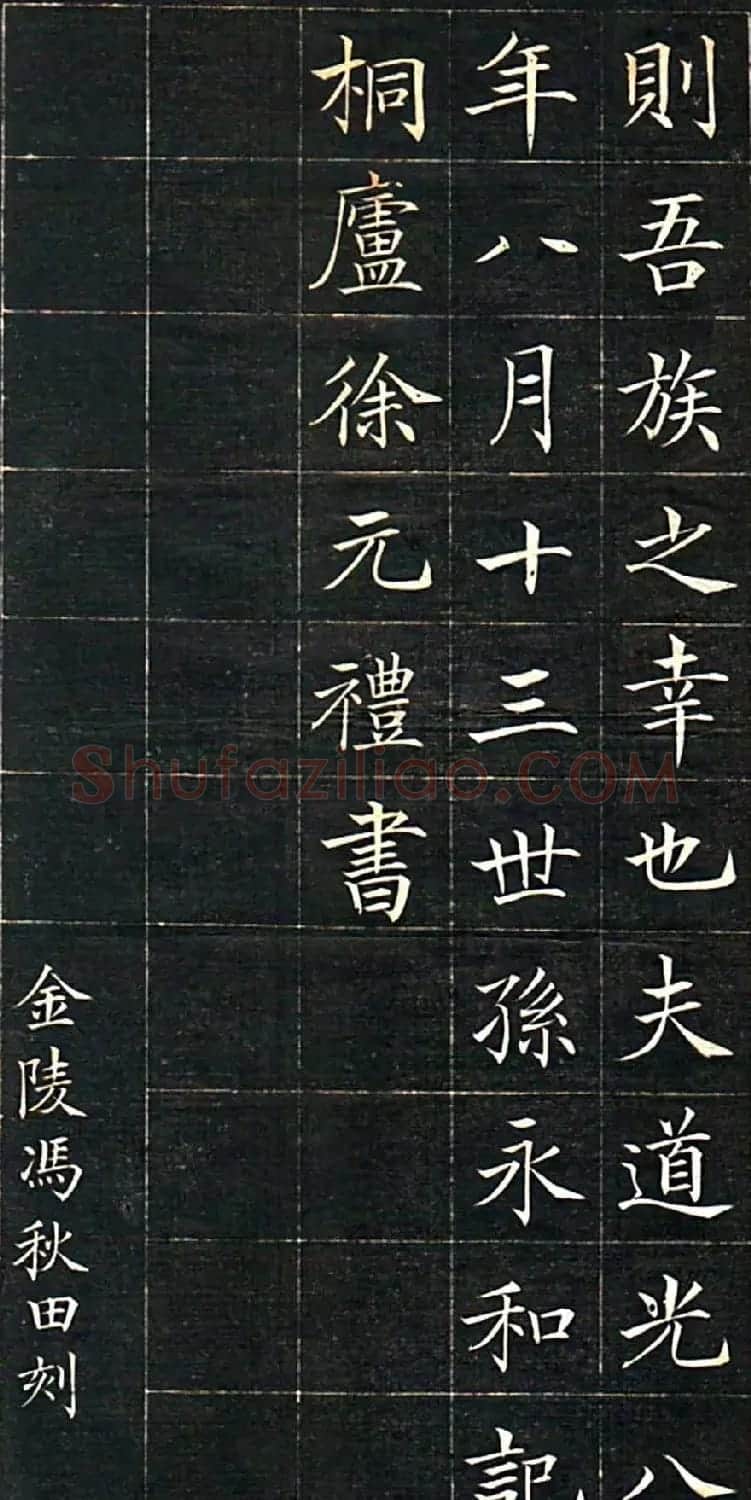 則吾族之幸也夫道光八
年八月十三世孫永和記
桐廬徐元禮書
金陵馮秋田刻
Shufaziliao.COM